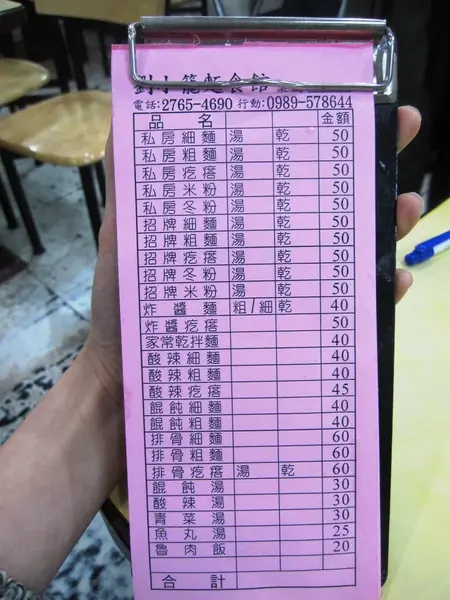 劉小籠麵食館
電話:2765-4690 行動:0989-578644
品 名 金額
私房細麵 湯 乾 50
私房粗麵 湯 乾 50
私房疙瘩 湯 乾 50
私房米粉 湯 乾 50
私房冬粉 湯 乾 50
招牌細麵 湯 乾 50
招牌粗麵 湯 乾 50
招牌疙瘩 湯 乾 50
招牌冬粉 湯 乾 50
招牌米粉 湯 乾 50
炸醬麵 粗/細 乾 40
炸醬疙瘩 50
家常乾拌麵 40
酸辣細麵 40
酸辣粗麵 40
酸辣疙瘩 45
餛飩細麵 40
餛飩粗麵 40
排骨細麵 60
排骨粗麵 60
排骨疙瘩 湯 乾 60
餛飩湯 30
酸辣湯 30
青菜湯 30
魚丸湯 25
魯肉飯 20
合 計